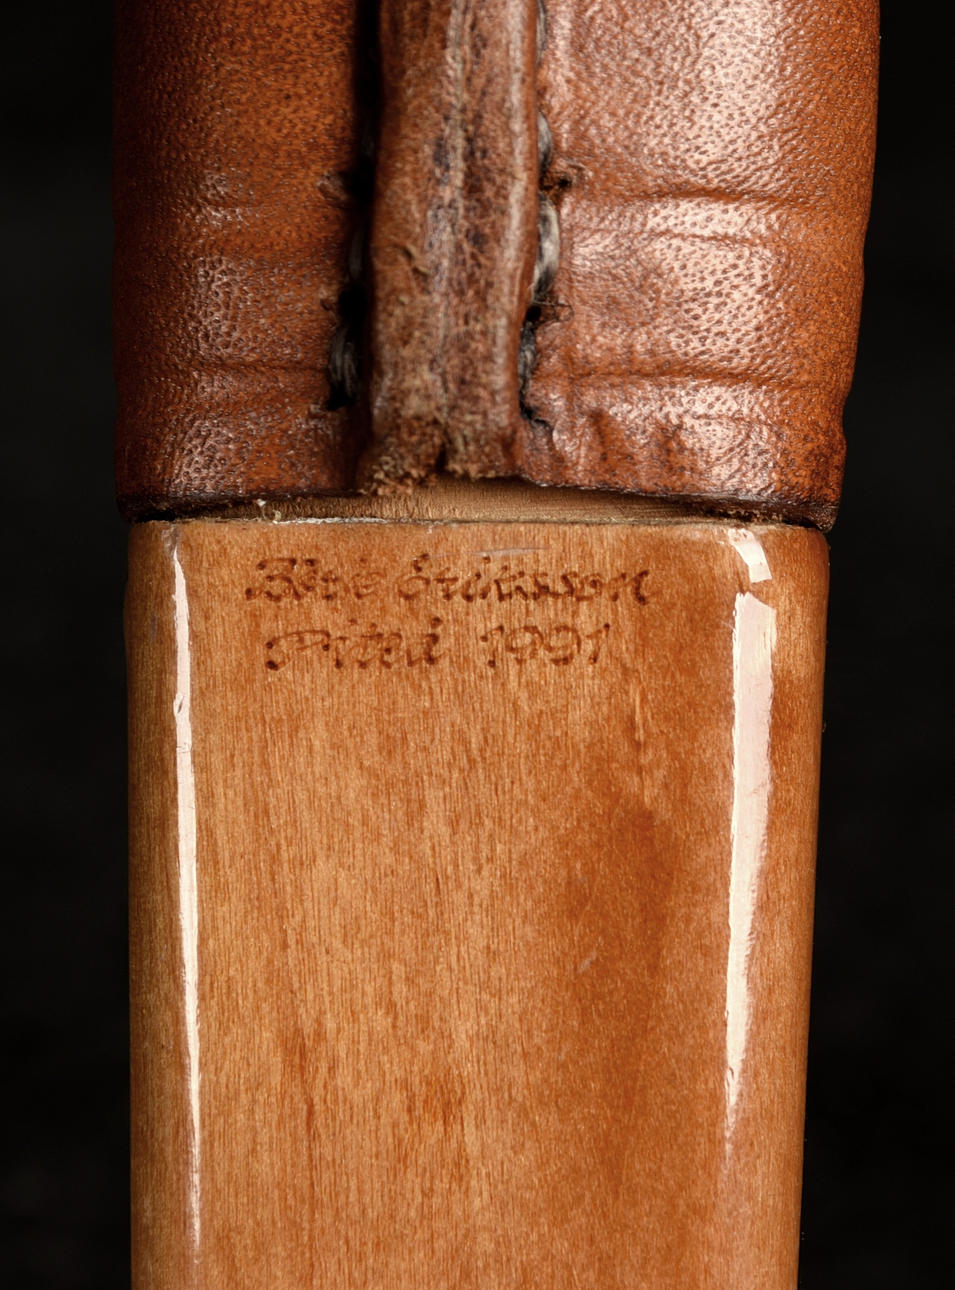 Eriksson
Piteå 1991